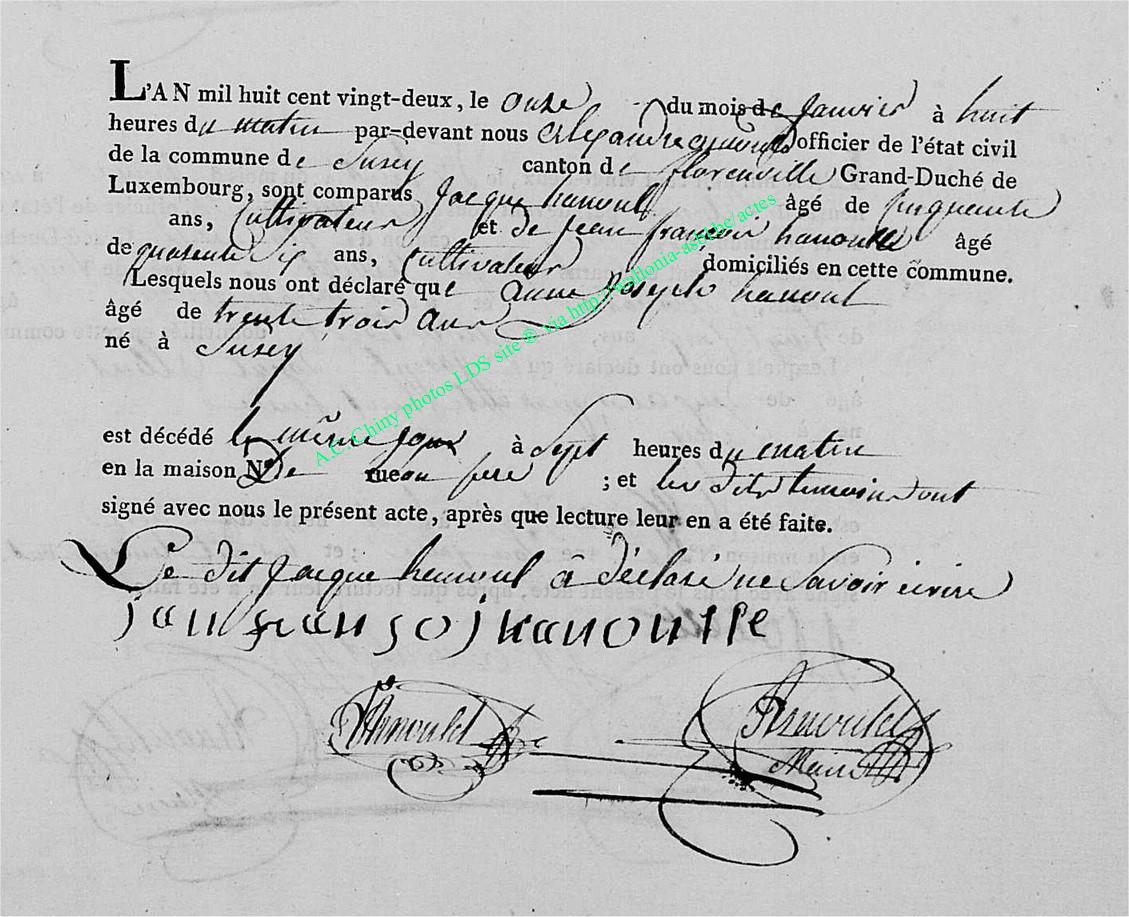 L'AN mil huit cent vingt-deux, le onze du mois de janvier à huit
heures du matin par-devant nous officier de l'état civil
de la commune de Susey canton de florenville Grand-Duché de
Luxembourg, sont comparus jacque hanoul âgé de
ans, Cultivateur et de jean françois hanoulle âgé
de quarente ans, Cultivateur domiciliés en cette commune.
Lesquels nous ont déclaré que anne josephe hanoul
âgé de trente trois ans
né à Susey
est décédé le même jour à Sept heures du matin
en la maison N.º De rue son pere ; et les dits temoins ont
signé avec nous le présent acte, après que lecture leur en a été faite.
Le dit jacque hanoul â déclaré ne Savoir écrire
jan fransoj hanoulle
Arnould Arnould
Maire
A.C. Chiny photos LDS site © via http://wallonia-asbl.be/actes